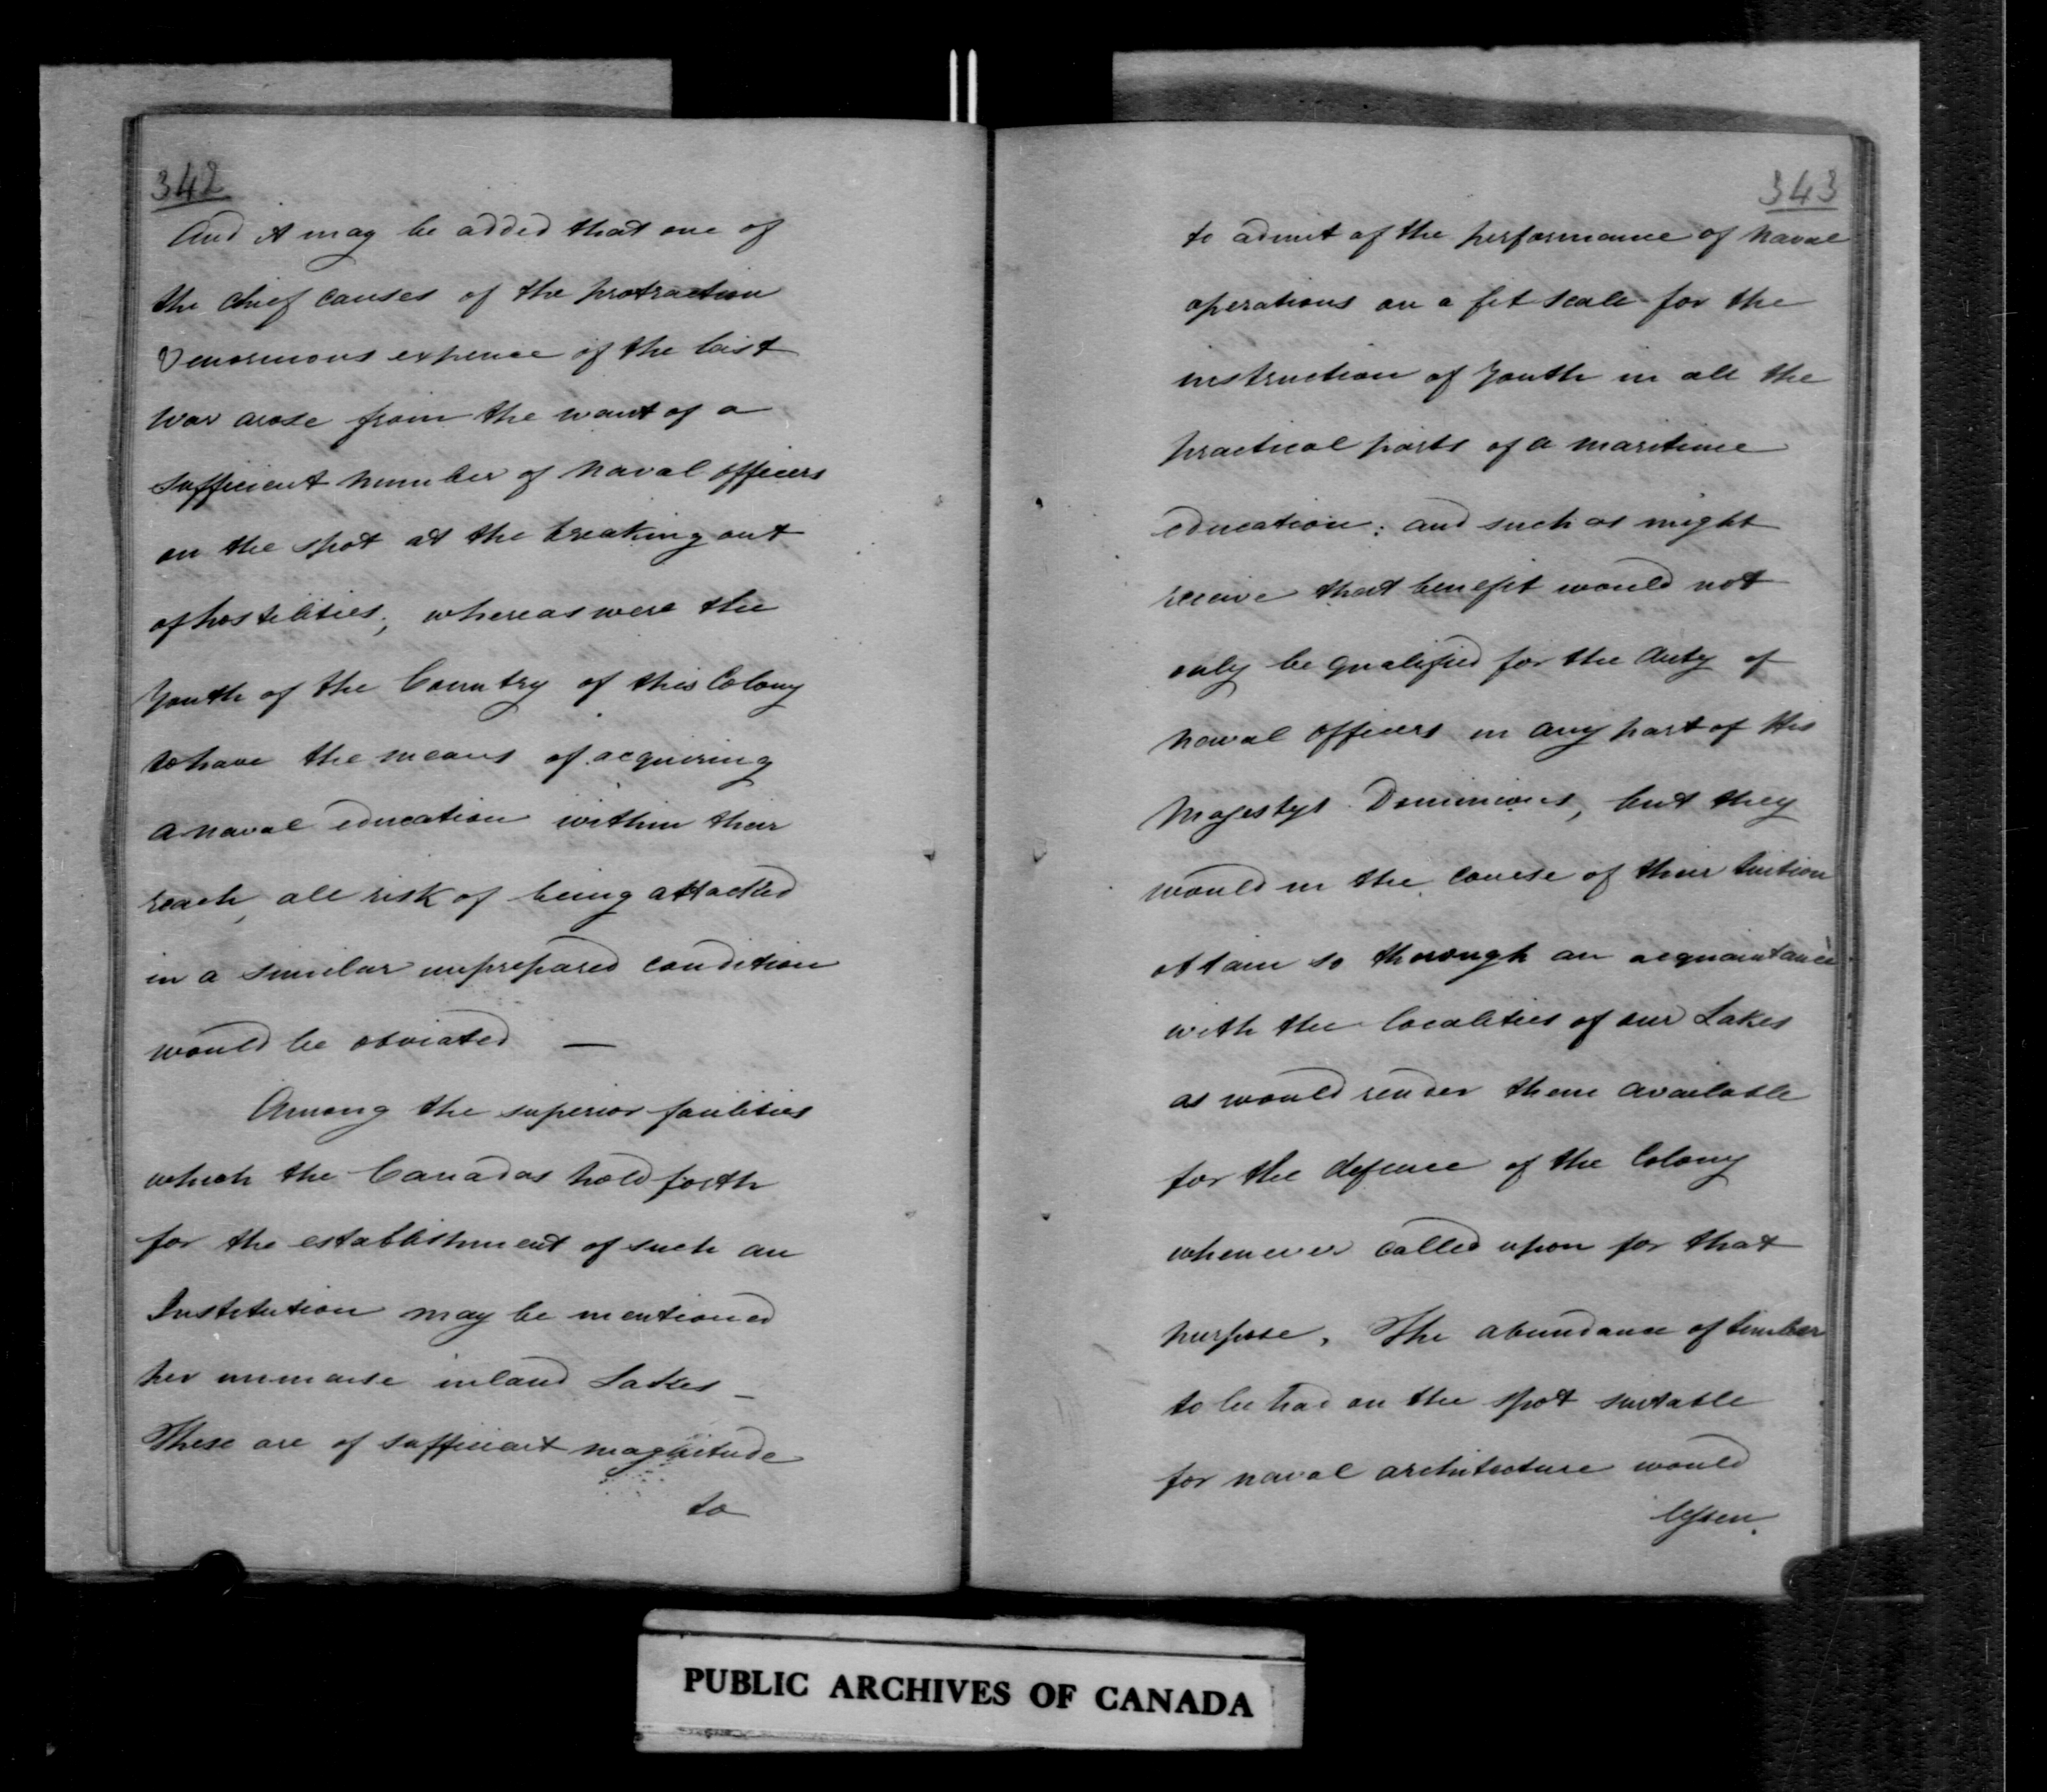 342
And it may be added that one of
the chief causes of the protraction
& enormous expence of the last
War arose from the want of a
sufficient number of Naval officers
on the spot at the breaking out
of hostilities; whereas were the
Youth of the Country of this Colony
to have the means of acquiring
a naval education within their
reach, all risk of being attacked
in a similar unprepared condition
would be obviated —
Among the superior facilities
which the Canadas hold forth
for the establishment of such an
Institution may be mentioned
her immense inland Lakes –
These are of sufficient magnitude
to
343
to admit of the performance of Naval
operations on a fit scale for the
instruction of Youth in all the
practical parts of a maritime
education; and such as might
receive that benefit would not
only be qualified for the duty of
Naval Officers in any part of His
Majestys Dominions, but they
would in the course of their tuition
obtain so thorough an acquaintance
with the localities of our Lakes
as would render them available
for the defence of the Colony
whenever called upon for that
purpose. The abundance of timber
to be had on the spot suitable
for naval architecture would
lessen.
PUBLIC ARCHIVES OF CANADA